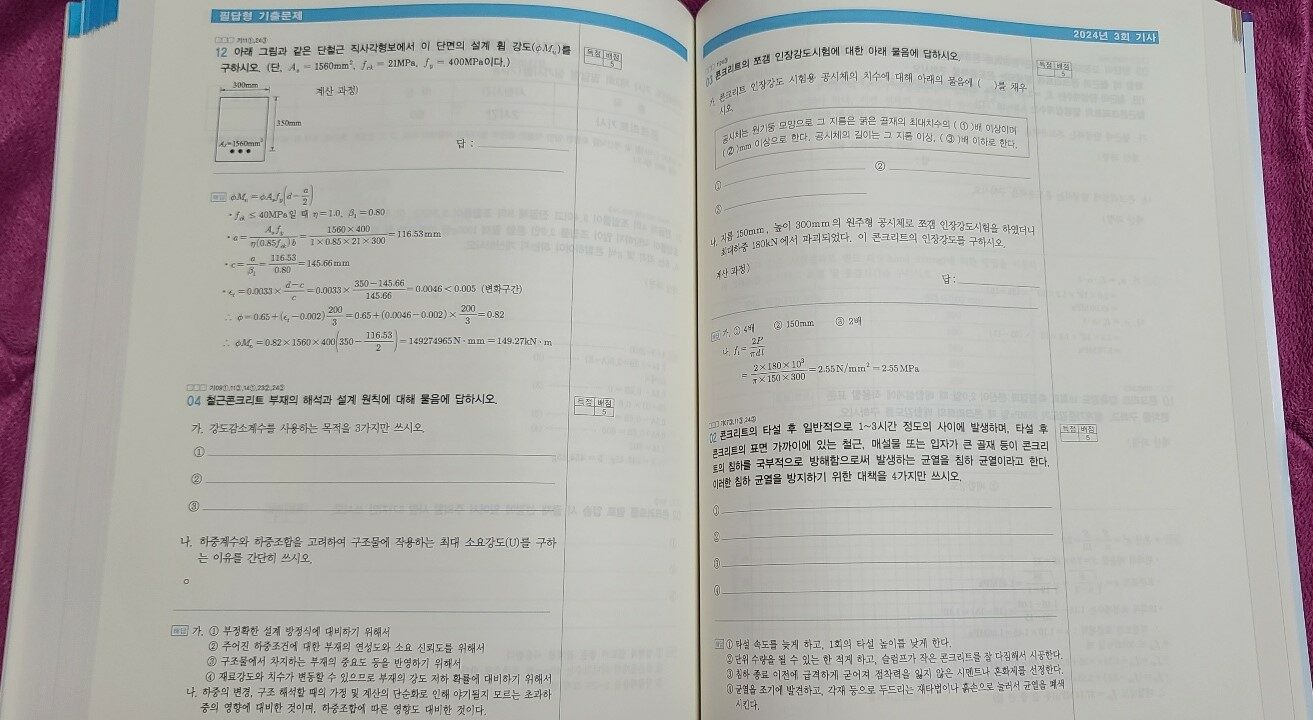 필답형 기출문제
기11①,24③
12 아래 그림과 같은 단철근 직사각형보에서 이 단면의 설계 휨 강도(φMn)를
구하시오. (단, As = 1560mm², fck = 21MPa, fy = 400MPa이다.)
득점 배점
5
300mm
계산 과정)
350mm
As=1560mm²
답 :
해답 φMn = φAsfy(d - a/2)
• fck ≤ 40MPa일 때 η=1.0, β1=0.80
• a = Asfy / η(0.85fck)b = 1560×400 / 1×0.85×21×300 = 116.53mm
• c = a/β1 = 116.53/0.80 = 145.66mm
• εt = 0.0033 × (d-c)/c = 0.0033 × (350-145.66)/145.66 = 0.0046 < 0.005 (변화구간)
∴ φ = 0.65 + (εt - 0.002) 200/3 = 0.65 + (0.0046 - 0.002) × 200/3 = 0.82
∴ φMn = 0.82×1560×400(350 - 116.53/2) = 149274965N·mm = 149.27kN·m
기09①,11③,14①,23②,24③
04 철근콘크리트 부재의 해석과 설계 원칙에 대해 물음에 답하시오.
득점 배점
5
가. 강도감소계수를 사용하는 목적을 3가지만 쓰시오.
①
②
③
나. 하중계수와 하중조합을 고려하여 구조물에 작용하는 최대 소요강도(U)를 구하
는 이유를 간단히 쓰시오.
○
해답 가. ① 부정확한 설계 방정식에 대비하기 위해서
② 주어진 하중조건에 대한 부재의 연성도와 소요 신뢰도를 위해서
③ 구조물에서 차지하는 부재의 중요도 등을 반영하기 위해서
④ 재료강도와 치수가 변동할 수 있으므로 부재의 강도 저하 확률에 대비하기 위해서
나. 하중의 변경, 구조 해석할 때의 가정 및 계산의 단순화로 인해 야기될지 모르는 초과하
중의 영향에 대비한 것이며, 하중조합에 따른 영향도 대비한 것이다.
2024년 3회 기사
03 콘크리트의 쪼갬 인장강도시험에 대한 아래 물음에 답하시오.
득점 배점
5
가. 콘크리트 인장강도 시험용 공시체의 치수에 대해 아래의 물음에 ( )를 채우
시오.
공시체는 원기둥 모양으로 그 지름은 굵은 골재의 최대치수의 ( ① )배 이상이며
( ② )mm 이상으로 한다. 공시체의 길이는 그 지름 이상, ( ③ )배 이하로 한다.
①
②
③
나. 지름 150mm, 높이 300mm의 원주형 공시체로 쪼갬 인장강도시험을 하였더니
최대하중 180kN에서 파괴되었다. 이 콘크리트의 인장강도를 구하시오.
계산 과정)
답 :
해답 가. ① 4배 ② 150mm ③ 2배
나. f1 = 2P / πdl
= 2×180×10³ / π×150×300 = 2.55N/mm² = 2.55MPa
02 콘크리트의 타설 후 일반적으로 1~3시간 정도의 사이에 발생하며, 타설 후
콘크리트의 표면 가까이에 있는 철근, 매설물 또는 입자가 큰 골재 등이 콘크리
트의 침하를 국부적으로 방해함으로써 발생하는 균열을 침하 균열이라고 한다.
이러한 침하 균열을 방지하기 위한 대책을 4가지만 쓰시오.
득점 배점
5
①
②
③
④
해답 ① 타설 속도를 늦게 하고, 1회의 타설 높이를 낮게 한다.
② 단위 수량을 될 수 있는 한 적게 하고, 슬럼프가 작은 콘크리트를 잘 다짐해서 시공한다.
③ 침하 종료 이전에 급격하게 굳어져 점착력을 잃지 않은 시멘트나 혼화제를 선정한다.
④ 균열을 조기에 발견하고, 각재 등으로 두드리는 재타법이나 흙손으로 눌러서 균열을 폐색
시킨다.